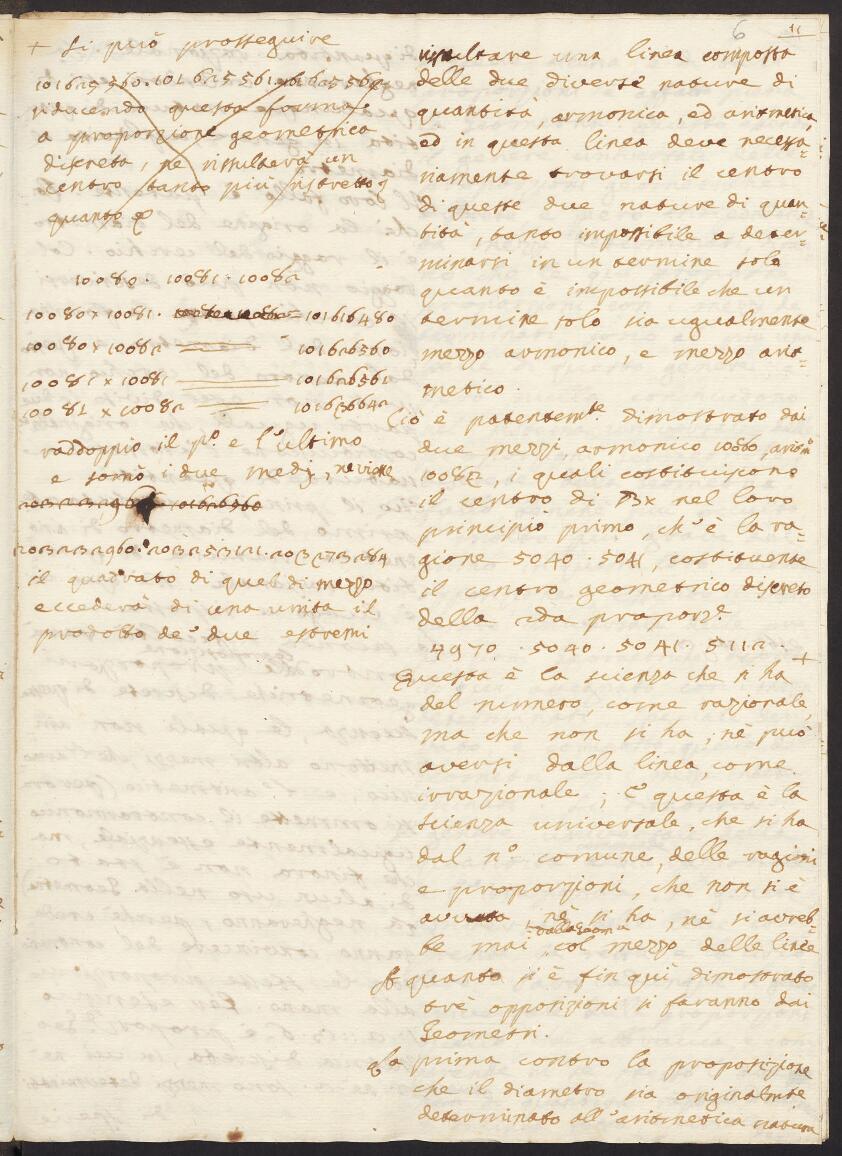 6 11
+ Si può prosseguire
101625560. 101625561. 101625562
riducendo questa forma
a proporzione geometrica
discreta, ne rissulterà un
centro tanto più ristretto
quanto
10080. 10081. 10082
10080 x 10081. = 101616480
10080 x 10082 = 101626560
10081 x 10081 = 101626561
10081 x 10082 = 101636642
raddoppio il p.º e l'ultimo
e somo i due medj, ne viene
203232960 101626560
203232960. 203253121. 203273284
il quadrato di quel di mezzo
eccederà di una unita il
prodotto de' due estremi
rissultare una linea composta
delle due diverse nature di
quantità, armonica, ed aritmetica,
ed in questa linea deve necessa=
riamente trovarsi il centro
di queste due nature di quan=
tità, tanto impossibile a deter=
minarsi in un termine solo
quanto è impossibile che un
termine solo sia ugualmente
mezzo armonico, e mezzo arit=
metico.
Ciò è patentem.te dimostrato dai
due mezzi, armonico 10080, aritm.º
10082, i quali costituiscono
il centro di Bx nel loro
principio primo, ch'è la ra=
gione 5040. 5041, costituente
il centro geometrico discreto
della 2da proporz.e
4970. 5040. 5041. 5112. +
Questa è la scienza che si ha
del numero, come razionale,
ma che non si ha, nè può
aversi dalla linea, come
irrazionale; E questa è la
scienza universale, che si ha
dal n.º comune, delle ragioni
e proporzioni, che non si è
avuta nè si ha, nè si avreb=
be mai dalla Geom.a col mezzo delle linee
A quanto si è fin quì dimostrato
trè opposizioni si faranno dai
Geometri.
La prima contro la proposizione
che il diametro sia originalm.te
determinato all'aritmetica natura